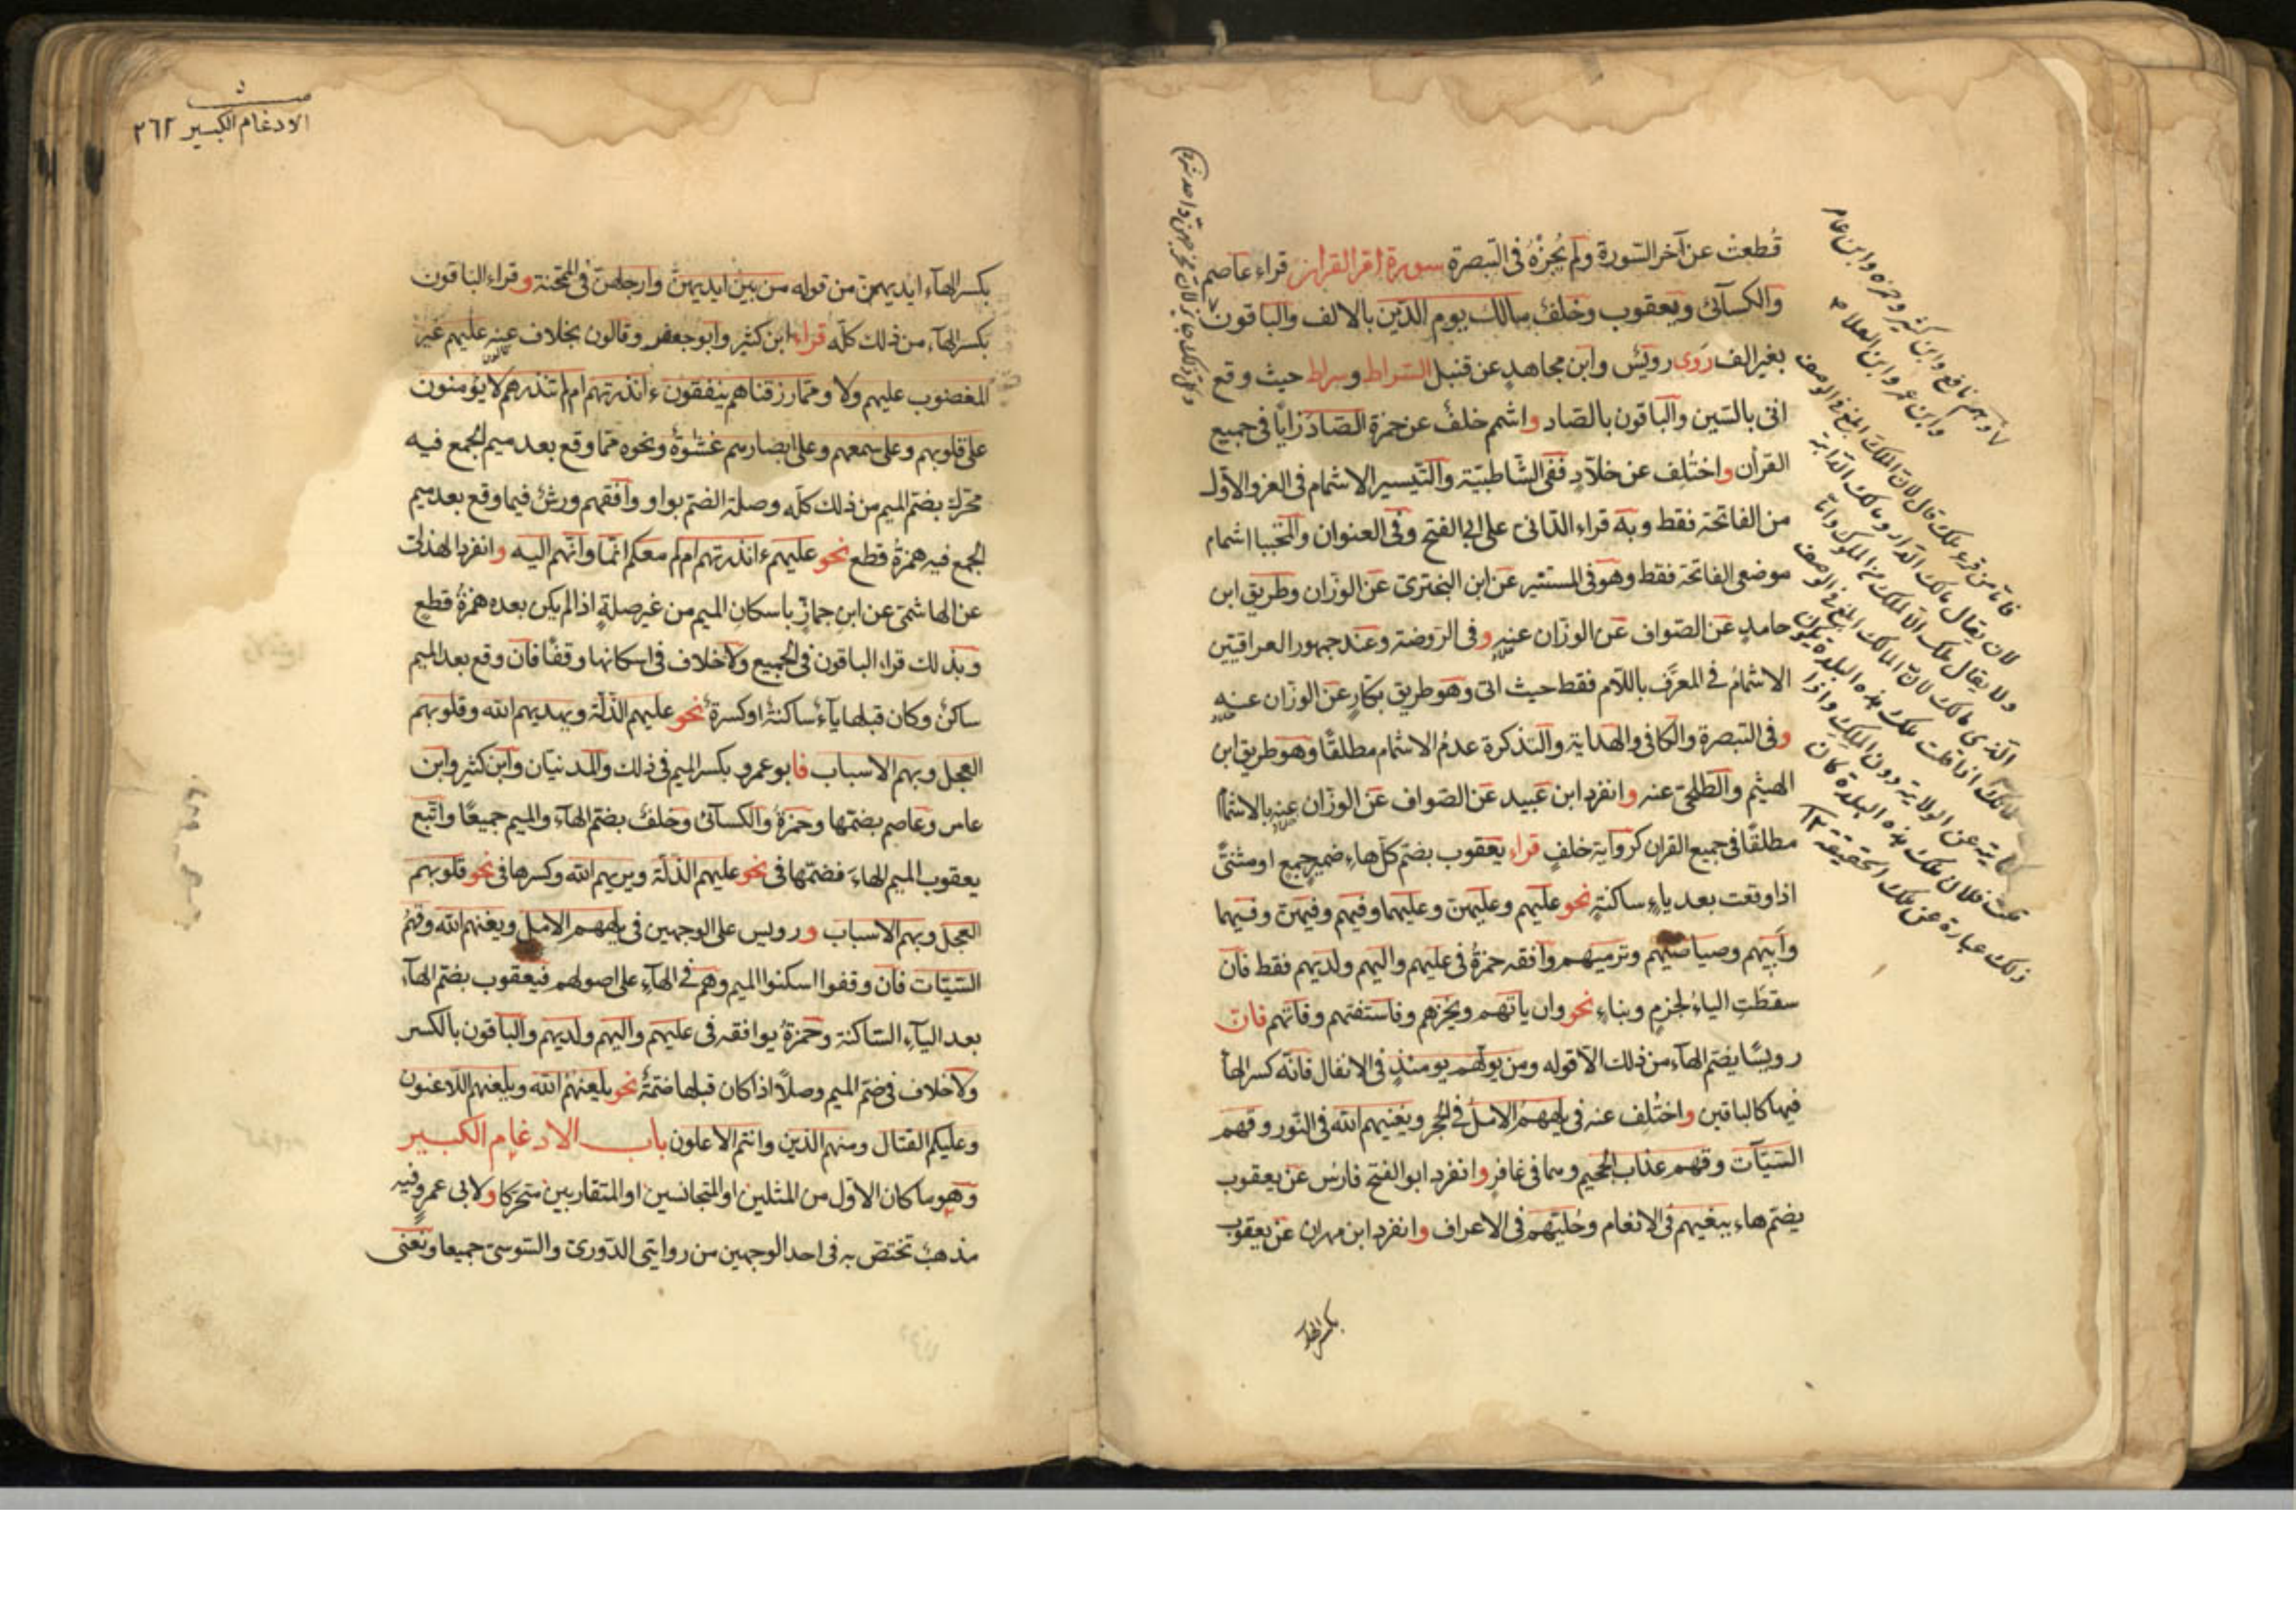 قُطعتْ عن آخر السّورة ولم يُجزْهُ فى التبصرة سورة ام القران قراء عاصم
والكسآئى ويعقوب وخلفٌ مالك يوم الدّين بالالف والباقون
بغير الف رَوى رويسٌ وابن مجاهدٍ عن قنبل السّراط وسراط حيث وقع
اتى بالسّين والباقون بالصّاد واشمّ خلفٌ عن حمزة الصّاد زايًا فى جميع
القرأن واختُلِف عن خلّادٍ ففى الشّاطبيّة والتّيسير الاشمام فى العز والاوّل
من الفاتحة فقط وبه قراء الدّانى على ابى الفتح وفى العنوان والمجتبا اشمام
موضعى الفاتحة فقط وهو فى المستنير عن ابن البخترى عن الوزّان وطريق ابن
حامدٍ عن الصّواف عن الوزّان عنه وفى الرّوضة وعند جمهور العراقيّين
الاشمامُ فى المعرّف باللّام فقط حيث اتى وهو طريق بكّارٍ عن الوزّان عنه
وفى التبصرة والكافى والهداية والتذكرة عدمُ الاشمام مطلقًا وهو طريق ابن
الهيثم والطّلحىّ عنه وانفرد ابن عبيد عن الصّواف عن الوزّان عنه بالاشمام
مطلقًا فى جميع القران كرواية خلفٍ قراء يعقوب بضمّ كلّ هاء ضمير جمع او مثنّىً
اذا وقعت بعد ياءٍ ساكنةٍ نحو عليهم وعليهنّ وعليهما وفيهم وفيهنّ وفيهما
وأبيهم وصياصيهم وترميهم وافقه حمزةُ فى عليهم واليهم ولديهم فقط فان
سقطتِ الياءُ لجزمٍ وبناءٍ نحو وان ياتهم ويخزهم وفاستفتهم وفاتهم فان
رويسًا يضمّ الهآء من ذلك الّا قوله ومن يولّهم يومئذٍ فى الانفال فانّه كسر الهآ
فيها كالباقين واختُلِف عنه فى يلههمُ الاملُ فى الحجر ويغنيهم الله فى النّور وقهم
السّيّآت وقهم عذاب الجحيم وهما فى غافرٍ وانفرد ابو الفتح فارس عن يعقوب
بضمّ هاء ببغيهم فى الانعام وحُليّهم فى الاعراف وانفرد ابن مهران عن يعقوب
بكسر الهاء
الادغام الكبير ٢٦٢
بكسر الهآء ايديهنّ من قوله من بين ايديهنّ وارجلهنّ فى الممتحنة وقراء الباقون
بكسر الهآء من ذلك كلّه قراء ابن كثير وابو جعفر وقالون بخلاف عنه عليهم غير
المغضوب عليهم ولا وممّا رزقناهم ينفقون ءانذرتهم ام لم تنذرهم لا يؤمنون
على قلوبهم وعلى سمعهم وعلى ابصارهم غشٰوةٌ ونحوه ممّا وقع بعد ميم الجمع فيه
محرّك بضمّ الميم من ذلك كلّه وصلة الضمّ بواو وافقهم ورشٌ فيما وقع بعد ميم
الجمع فيه همزةُ قطعٍ نحو عليهم ءانذرتهم ام لم معكم انّما وانّهم اليه وانفرد الهذلىّ
عن الهاشمىّ عن ابن جمازٍ باسكان الميم من غير صلةٍ اذا لم يكن بعده همزةُ قطعٍ
وبذلك قراء الباقون فى الجميع ولا خلاف فى اسكانها وقفًا فان وقع بعد الميم
ساكنٌ وكان قبلها يآءٌ ساكنةٌ او كسرةٌ نحو عليهم الذّلّة ويهديهم الله وقلوبهم
العجل وبهم الاسباب فابو عمرو بكسر الميم فى ذلك والمدنيّان وابن كثير وابن
عامر وعاصم بضمّها وحمزةُ والكسآئى وخلفٌ بضمّ الهآء والميم جميعًا واتّبع
يعقوب الميم الهاءَ فضمّها فى نحو عليهم الذلّة ويريهم الله وكسرها فى نحو قلوبهم
العجل وبهم الاسباب ورويس على الوجهين فى يلههم الامل ويغنهم الله وقهمُ
السّيّات فان وقفوا اسكنوا الميم وهم فى الهآء على اصولهم فيعقوب بضمّ الهآء
بعد اليآء السّاكنة وحمزةُ يوافقه فى عليهم واليهم ولديهم والباقون بالكسر
ولا خلاف فى ضمّ الميم وصلًا اذا كان قبلها ضمّةٌ نحو يلعنهُمُ الله ويلعنهم اللّاعنون
وعليكم القتال ومنهم الذين وانتم الاعلون باب الادغام الكبير
وهو ما كان الاوّل من المثلين او المتجانسين او المتقاربين متحركا ولابى عمرو فيه
مذهبٌ تختصّ به فى احد الوجهين من روايتى الدّورىّ والسّوسىّ جميعا ويعنى